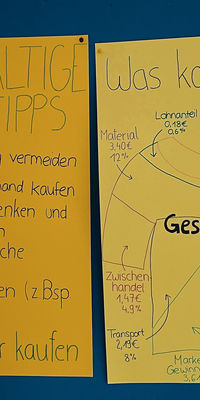 ALTIGE
TIPPS
vermeiden
hand kaufen
enken und
n
che
en (z.Bsp
r kaufen
Was ko
Lohnanteil
0,18€
0,6%
Material
3,40€
12%
Ges
Zwischen-
handel
1,47€
4,9%
Transport
2,19€
8%
Marke
Gewinn
3,61